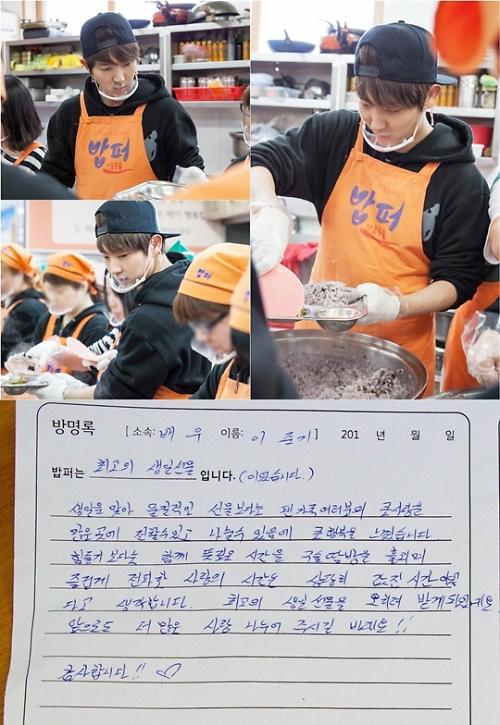 밥퍼
밥퍼
밥퍼
방명록 [ 소속: 배우 이름: 이준기 ] 201 년 월 일
밥퍼는 최고의 생일선물 입니다. (이었습니다.)
생일을 맞아 물질적인 선물보다는 팬 가족여러분의 큰사랑을
같은 곳에 전할수있고 나눌수 있음에 큰 행복을 느꼈습니다.
힘들기 보다는 함께 뜻깊은 시간을 구슬땀방울 흘리며
즐겁게 전파한 사랑의 시간은 상당히 멋진 시간이었
다고 생각합니다. 최고의 생일 선물을 오히려 받게되었네요
앞으로도 더 많은 사랑 나누어 주시길 바래요!!
감사합니다!! ♡